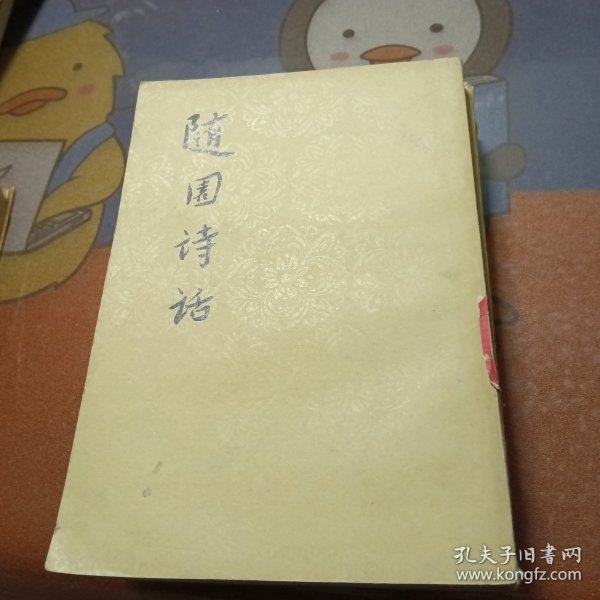 随园诗话
孔夫子旧书网
www.kongfz.com